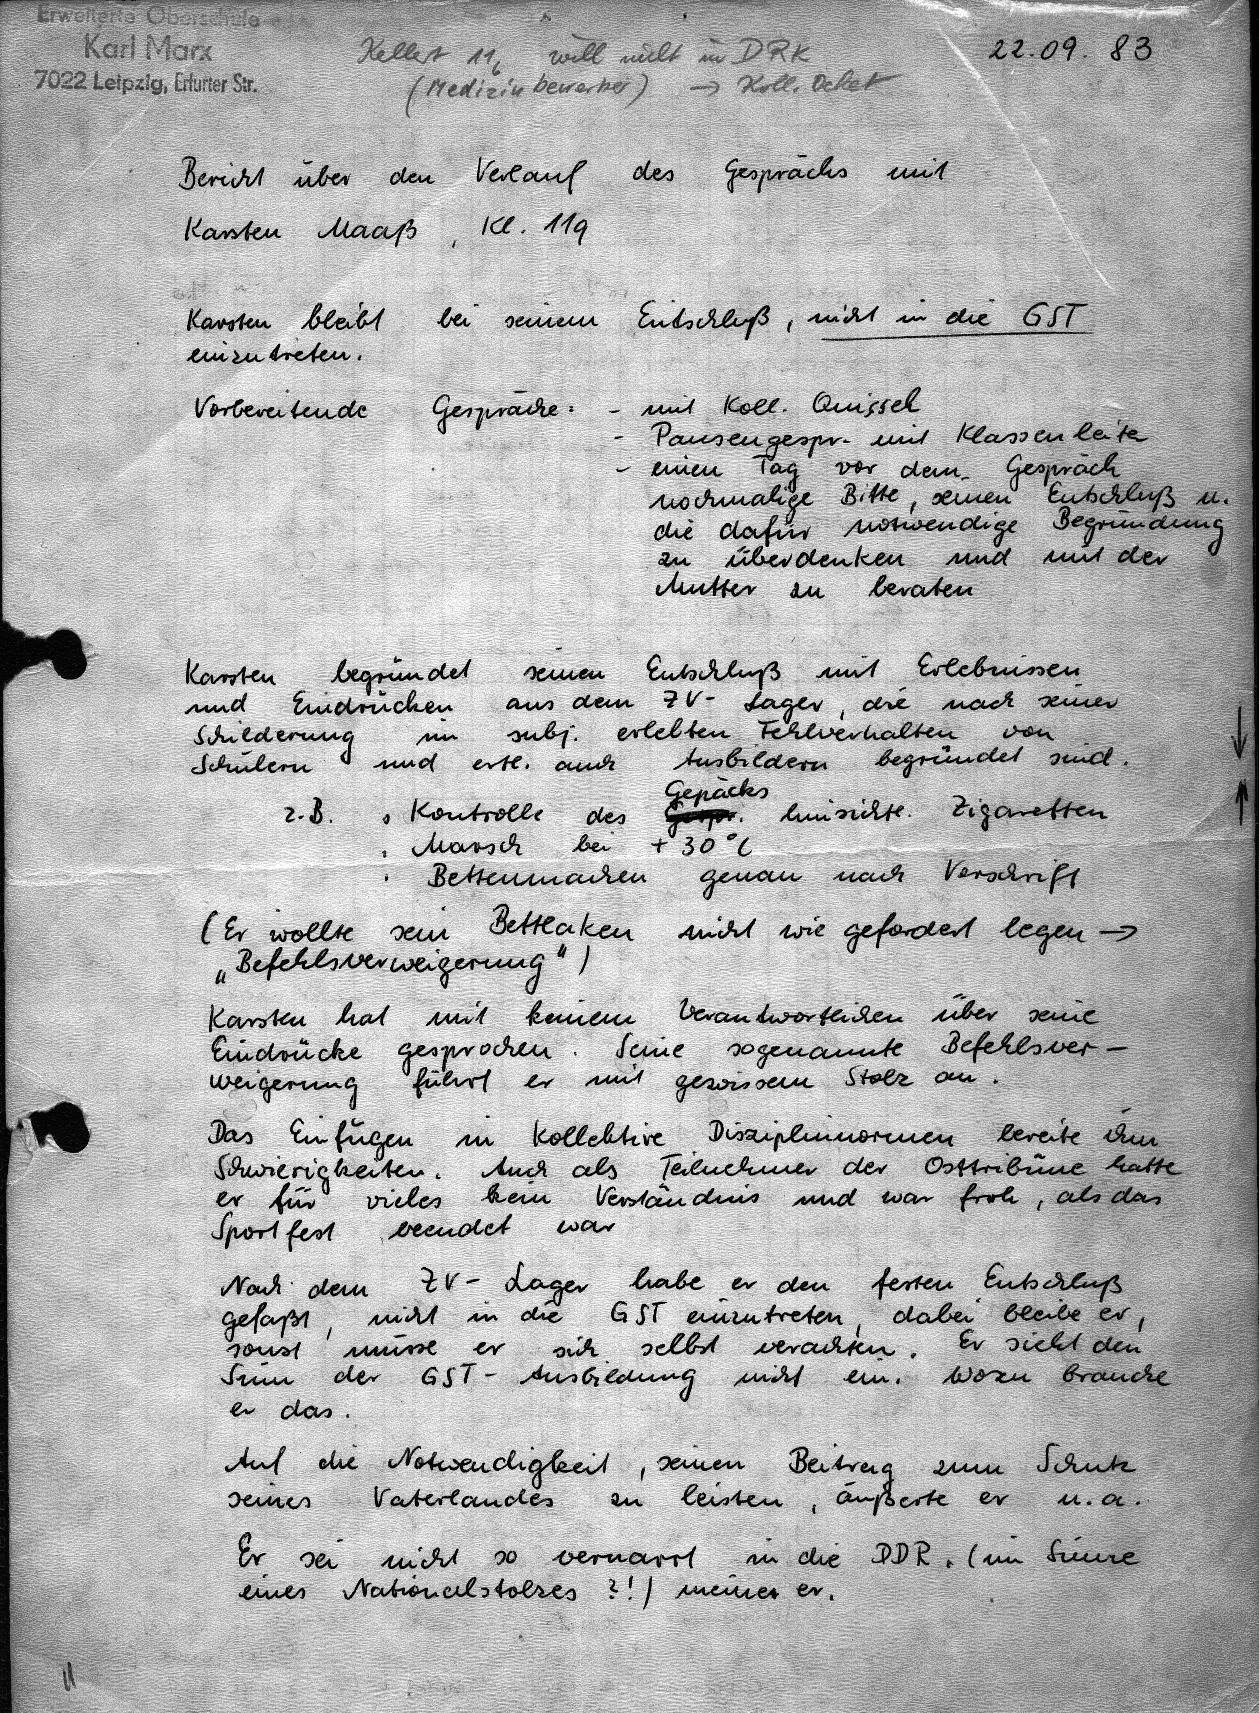 Erweiterte Oberschule
Karl Marx
7022 Leipzig, Erfurter Str.
Kellert 11b will nicht in DRK
(Medizinbewerber) → Koll.
22.09.83
Bericht über den Verlauf des Gesprächs mit
Karsten Maaß, Kl. 119
Karsten bleibt bei seinem Entschluß, nicht in die GST
einzutreten.
Vorbereitende Gespräche: - mit Koll. Quissek
- Pausengespr. mit Klassenleiter
- einen Tag vor dem Gespräch
nochmalige Bitte, seinen Entschluß u.
die dafür notwendige Begründung
zu überdenken und mit der
Mutter zu beraten
Karsten begründet seinen Entschluß mit Erlebnissen
und Eindrücken aus dem ZV-Lager, die nach seiner
Schilderung im subj. erlebten Fehlverhalten von
Schülern und ertl. auch Ausbildern begründet sind.
z.B. . Kontrolle des Gepäcks hinsichtl. Zigaretten
. Marsch bei + 30°C
. Bettenmachen genau nach Vorschrift
(Er wollte sein Bettlaken nicht wie gefordert legen →
„Befehlsverweigerung")
Karsten hat mit keinem Verantwortlichen über seine
Eindrücke gesprochen. Seine sogenannte Befehlsver-
weigerung führt er mit gewissem Stolz an.
Das Einfügen in kollektive Disziplinnormen bereite ihm
Schwierigkeiten. Auch als Teilnehmer der Osttribüne hatte
er für vieles kein Verständnis und war froh, als das
Sportfest beendet war
Nach dem ZV-Lager habe er den festen Entschluß
gefaßt, nicht in die GST einzutreten, dabei bleibe er,
sonst müsse er sich selbst verachten. Er sieht den
Sinn der GST-Ausbildung nicht ein. Wozu brauche
er das.
Auf die Notwendigkeit, seinen Beitrag zum Schutz
seines Vaterlandes zu leisten, äußerte er u.a.
Er sei nicht so vernarrt in die DDR. (im Sinne
eines Nationalstolzes ?!) meinte er.